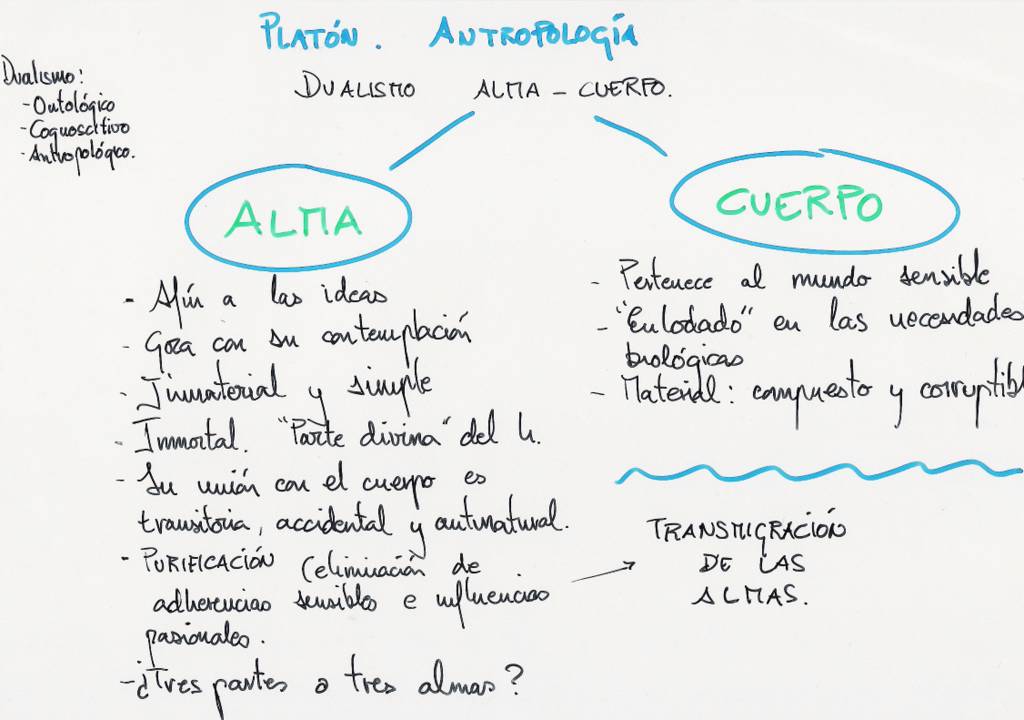 PLATÓN. ANTROPOLOGÍA
Dualismo:
- Ontológico
- Cognoscitivo
- Antropológico.
DUALISMO ALMA - CUERPO.
ALMA
- Afín a las ideas
- Goza con su contemplación
- Inmaterial y simple
- Inmortal. "Parte divina" del h.
- Su unión con el cuerpo es
transitoria, accidental y antinatural.
- PURIFICACIÓN (eliminación de
adherencias sensibles e influencias
pasionales.
- ¿Tres partes o tres almas?
CUERPO
- Pertenece al mundo sensible
- "Enlodado" en las necesidades
biológicas
- Material: compuesto y corruptibl
TRANSMIGRACIÓN
DE LAS
ALMAS.